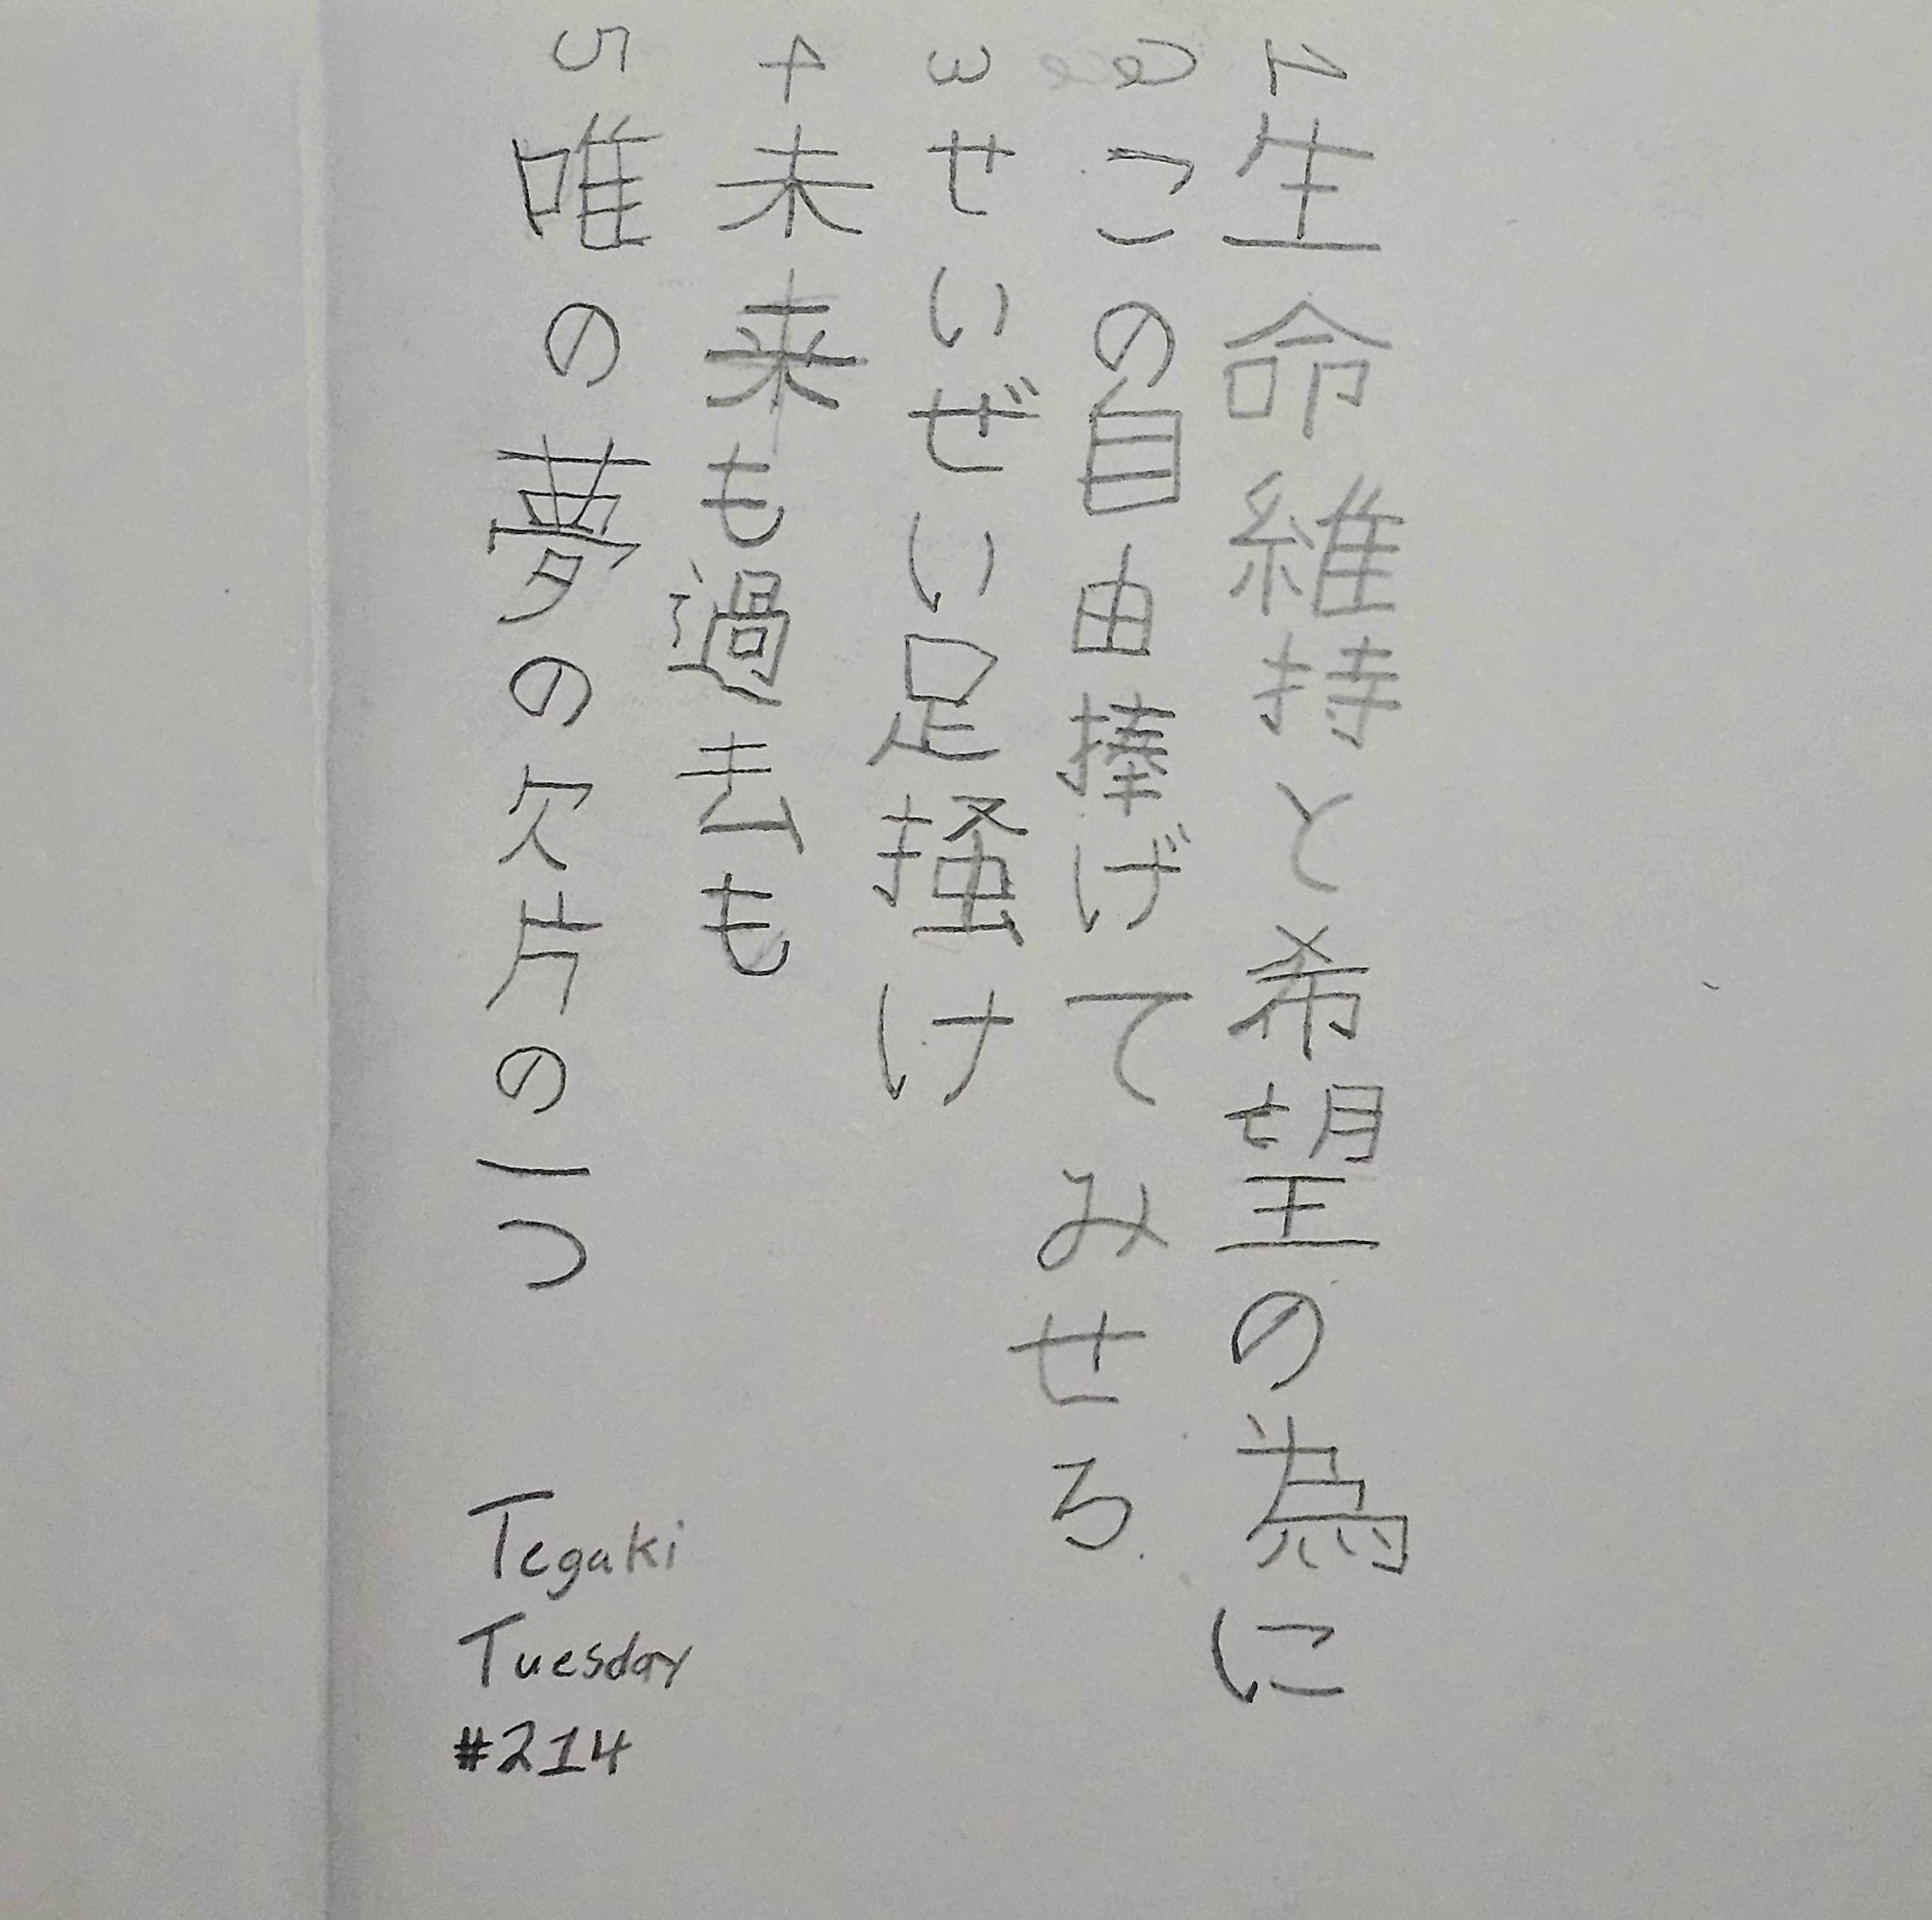 1生命維持と希望の為に
2この自由捧げてみせろ
3せいぜい足掻け
4未来も過去も
5唯の夢の欠片の一つ
Tegaki
Tuesday
#214